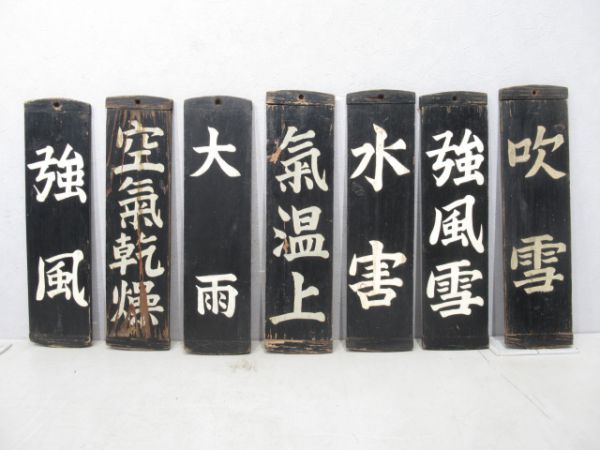 強風
空氣乾燥
大雨
氣温上
水害
強風雪
吹雪